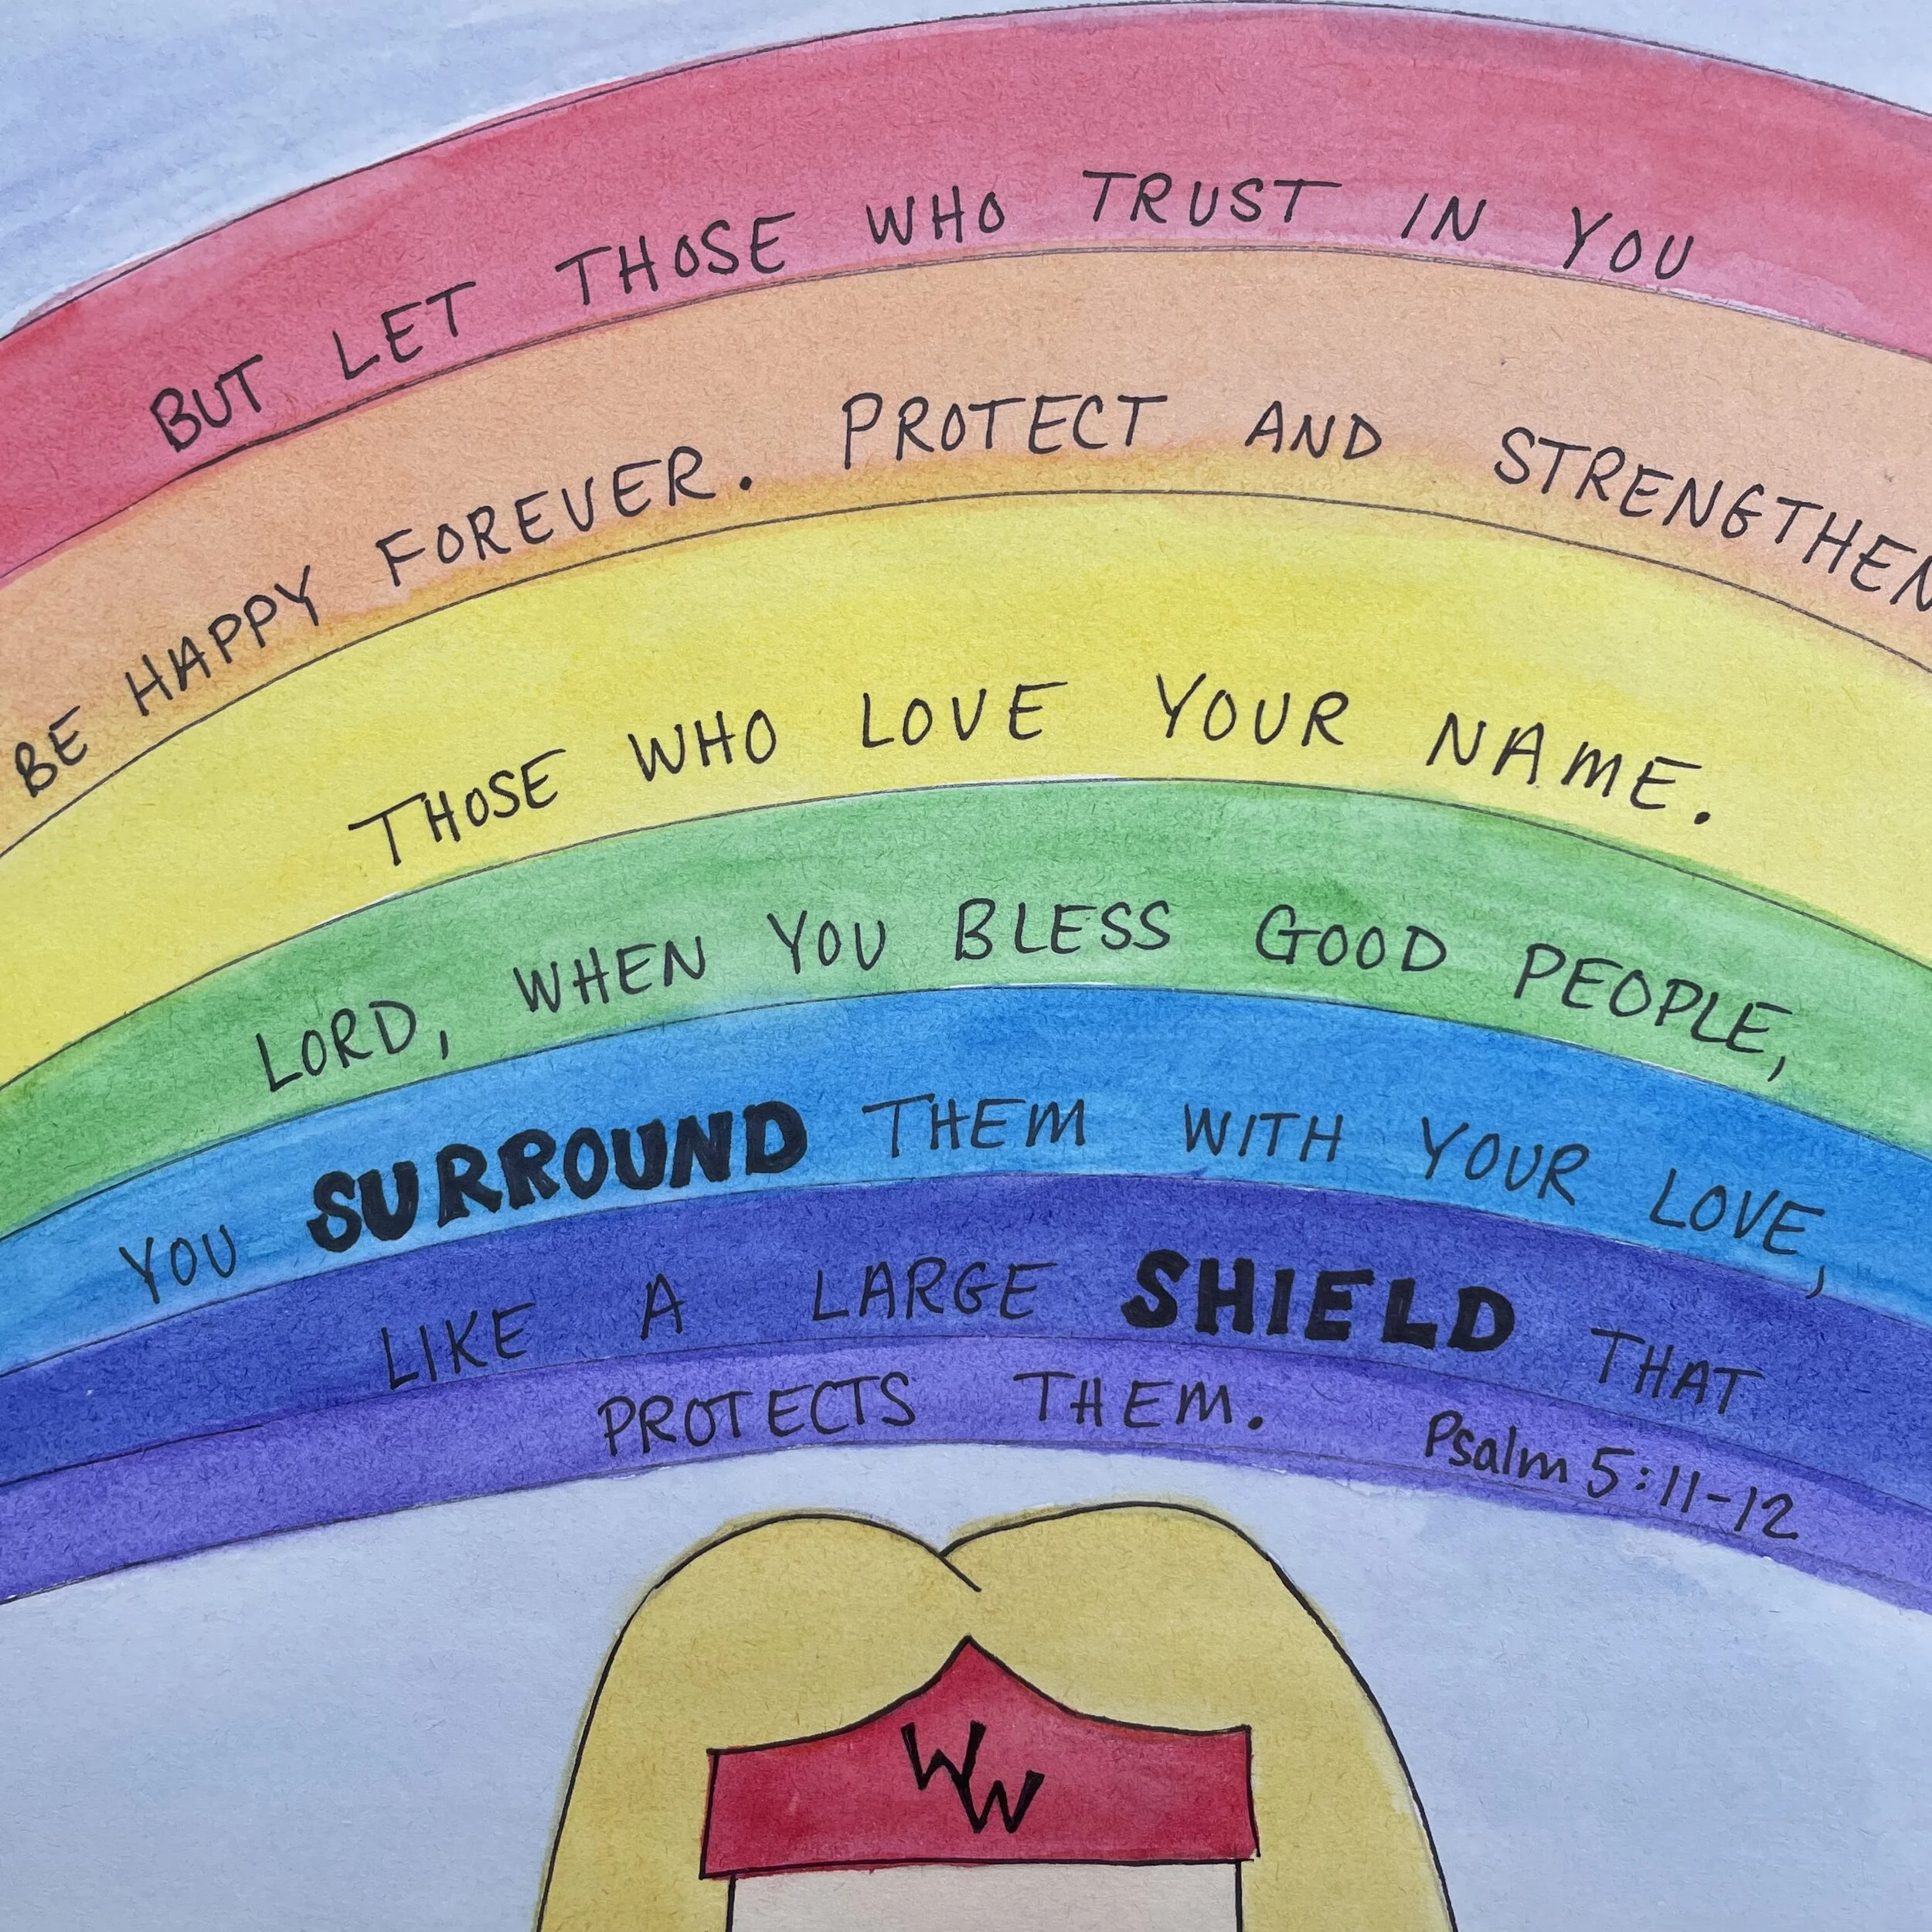 BUT LET THOSE WHO TRUST IN YOU
BE HAPPY FOREVER. PROTECT AND STRENGTHEN
THOSE WHO LOVE YOUR NAME.
LORD, WHEN YOU BLESS GOOD PEOPLE,
YOU SURROUND THEM WITH YOUR LOVE,
LIKE A LARGE SHIELD THAT
PROTECTS THEM. Psalm 5:11-12
WW